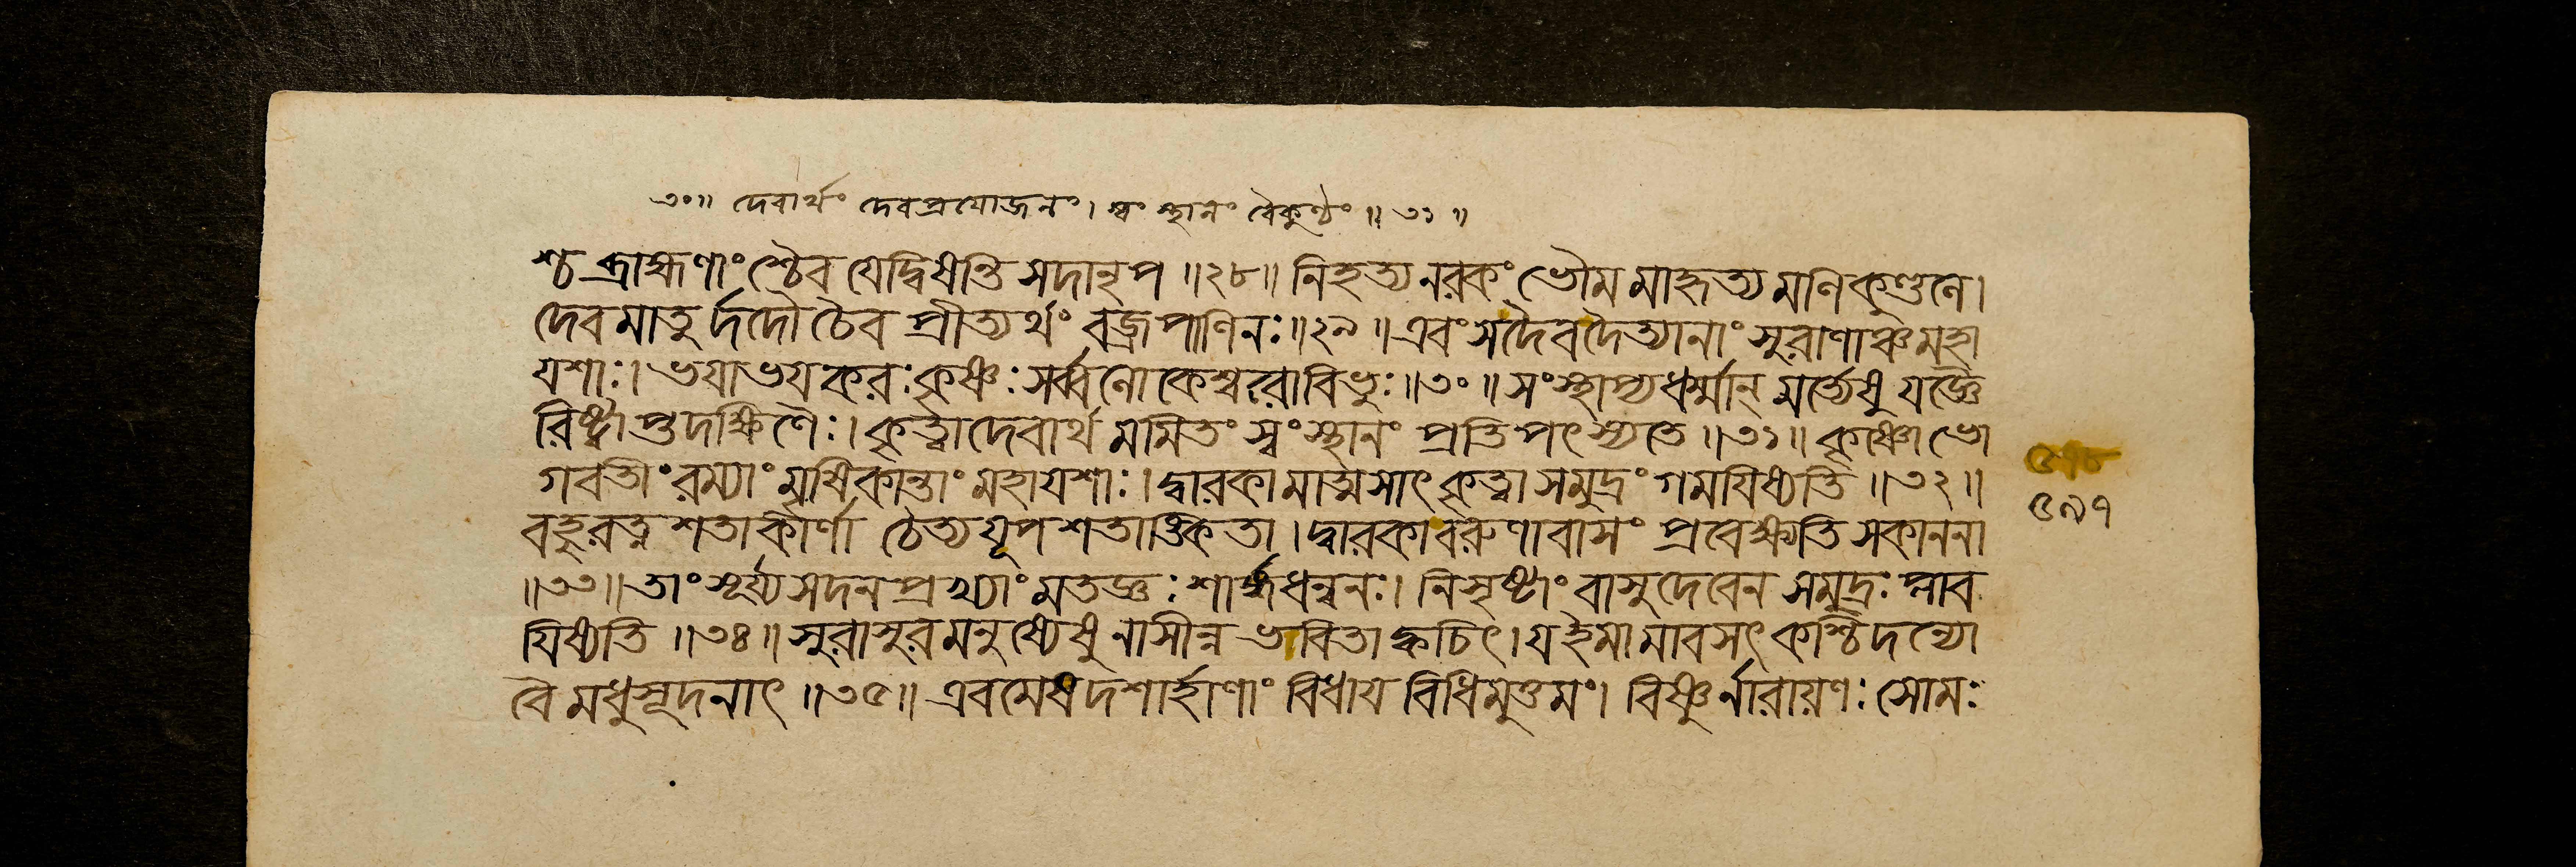 ৩০॥ দেবার্থং দেবপ্রযোজনং। স্বং স্থানং বৈকুণ্ঠং ॥ ৩১ ॥
শ্চ ব্রাহ্মণাংশ্চৈব যেদ্বিষন্তি সদানৃপ ॥২৮॥ নিহত্য নরকং ভৌম মাহৃত্য মণিকুণ্ডলে।
দেবমাতুর্দদৌ চৈব প্রীত্যর্থং বজ্রপাণিনঃ॥২৯॥ এবং সদৈবদৈত্যানাং সুরাণাঞ্চমহা
যশাঃ। ভযাভযকরঃকৃষ্ণঃসর্ব্বলোকেশ্বরোবিভুঃ॥৩০॥ সংস্থাপ্যধর্ম্মান্ মর্ত্যেষু যজ্ঞৈ
রিষ্ট্বাপ্তদক্ষিণৈঃ। কৃত্বাদেবার্থ মমিতং স্বংস্থানং প্রতিপৎস্যতে ॥৩১॥ কৃষ্ণোভো
গবতীংরম্যাং মৃষিকান্তাং মহাযশাঃ। দ্বারকামাত্মসাৎকৃত্বা সমুদ্রংগমযিষ্যতি ॥৩২॥
বহুরত্নশতাকীর্ণা চৈত্যযূপশতাঙ্কিতা। দ্বারকাবরুণাবাসং প্রবেক্ষ্যতি সকাননা
॥৩৩॥ তাং সূর্য্যসদনপ্রখ্যাং মতজ্ঞঃ শার্ঙ্গধন্বনঃ। নিসৃষ্টাং বাসুদেবেন সমুদ্রঃ প্লাব
যিষ্যতি ॥৩৪॥ সুরাসুরমনুষ্যেষু নাসীন্ন ভবিতা ক্বচিৎ। যইমামাবসৎ কশ্চিদন্যো
বৈ মধুসূদনাৎ ॥৩৫॥ এবমেষ দশার্হাণাং বিধায বিধিমুত্তমং। বিষ্ণুর্নারায়ণঃ সোমঃ
৫৯৭